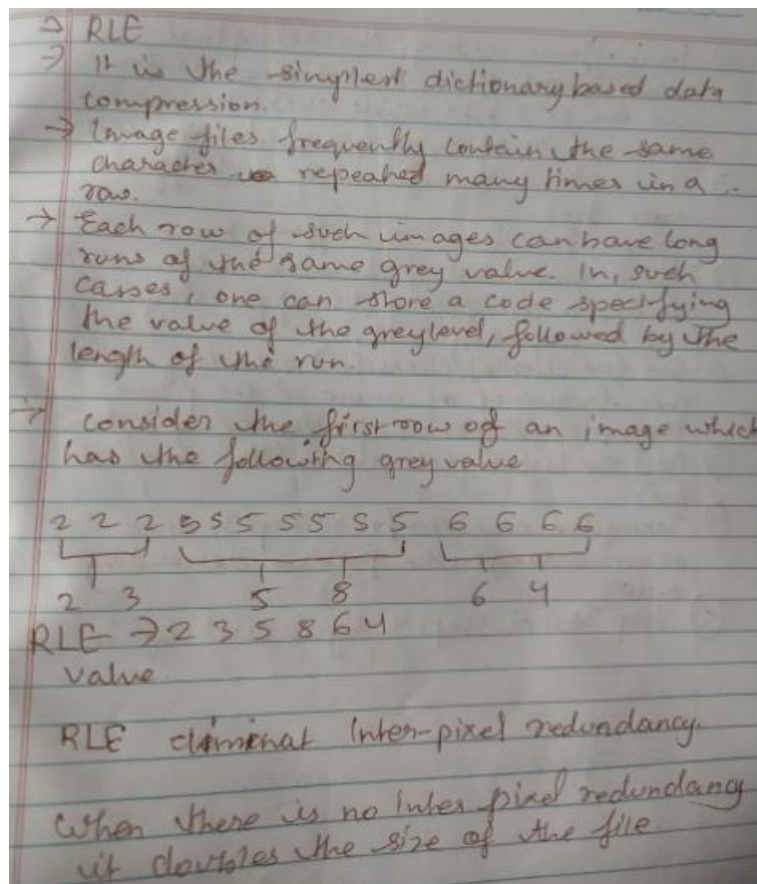 → RLE
→ It is the simplest dictionary based data
compression.
→ Image files frequently contain the same
character repeated many times in a
row.
→ Each row of such images can have long
runs of the same grey value. In, such
cases, one can store a code specifying
the value of the greylevel, followed by the
length of the run.
→ consider the first row of an image which
has the following grey value
2 2 2 5 5 5 5 5 5 5 6 6 6 6
2 3 5 8 6 4
RLE → 2 3 5 8 6 4
value
RLE eliminat Inter-pixel redundancy.
When there is no inter pixel redundancy
it doubles the size of the file.